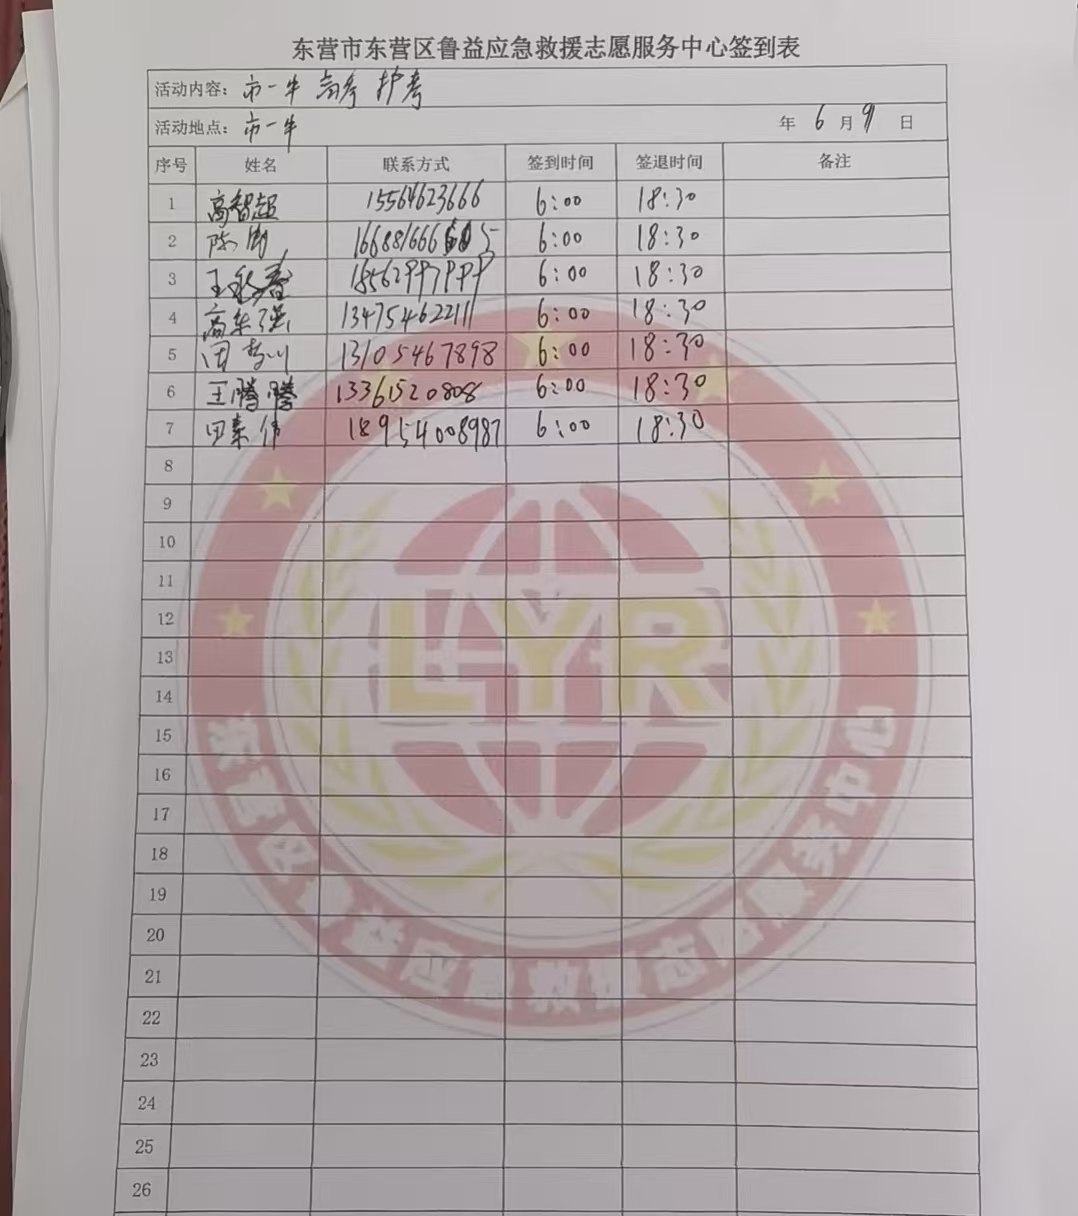 东营市东营区鲁益应急救援志愿服务中心签到表
活动内容: 市一中 高考 护考
活动地点: 市一中 年 6 月 9 日
序号 姓名 联系方式 签到时间 签退时间 备注
1 高智超 15564623666 6:00 18:30
2 陈刚 6:00 18:30
3 王秋春 18562997999 6:00 18:30
4 高东强 13475462211 6:00 18:30
5 13105467898 6:00 18:30
6 王腾腾 13361520808 6:00 18:30
7 田素伟 18954008987 6:00 18:30
8
9
10
11
12
13
14
15
16
17
18
19
20
21
22
23
24
25
26
LYR
东营区鲁益应急救援志愿服务中心